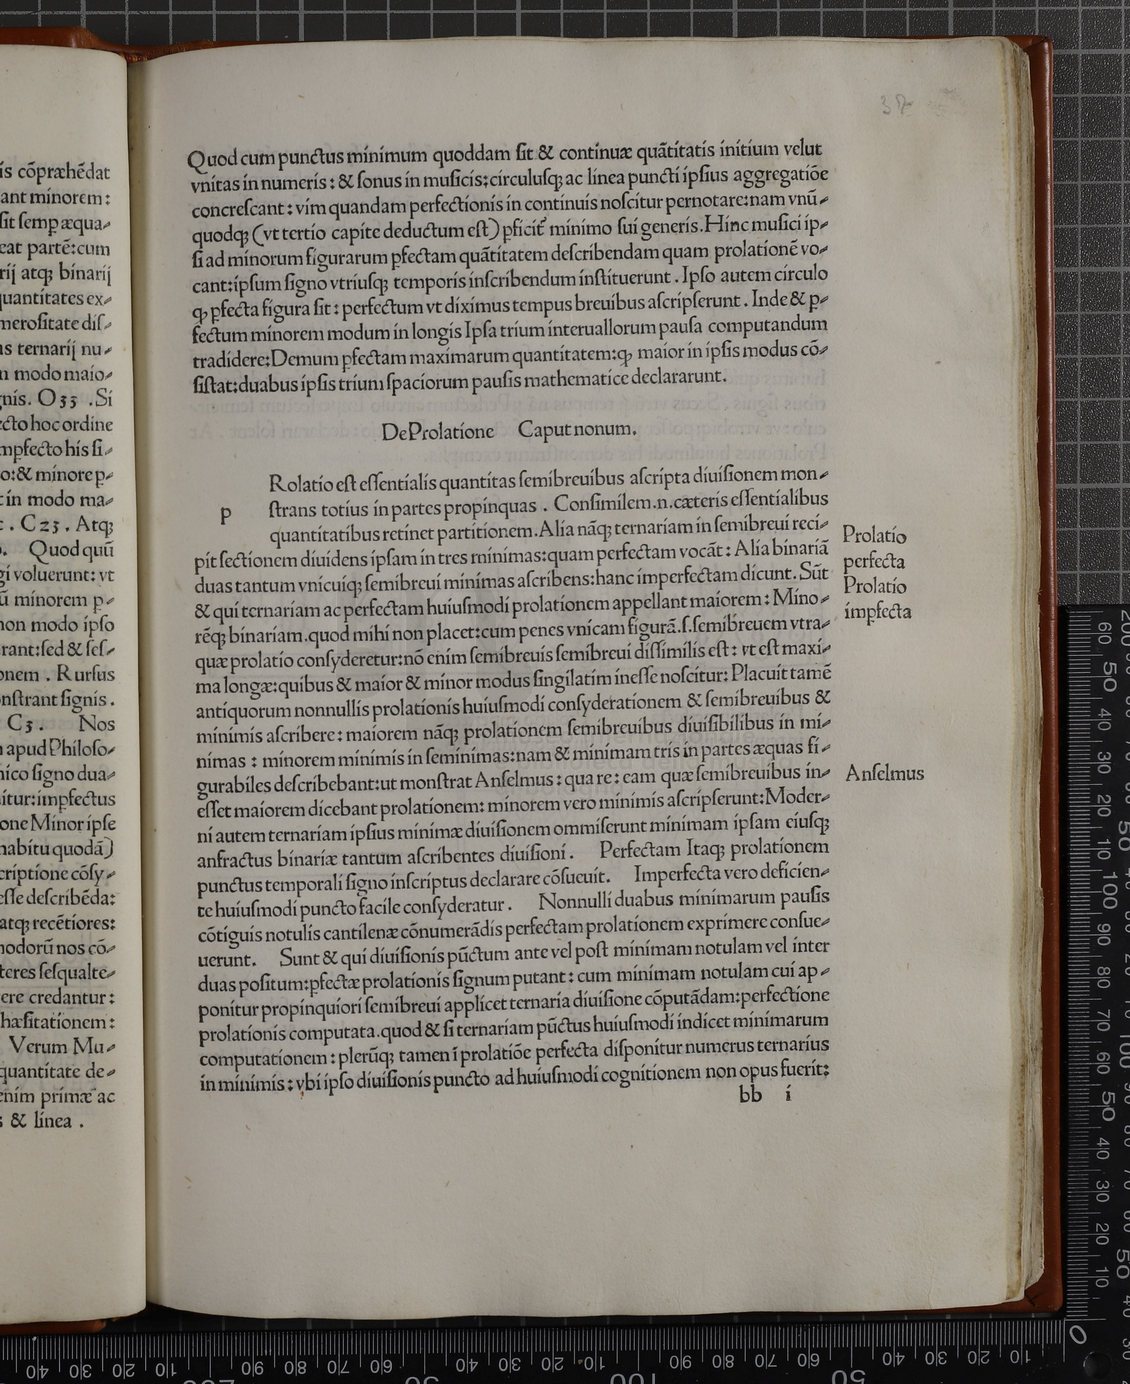 is cōpræhēdat
ant minorem:
sit semp æqua-
eat partē: cum
rij atqꝫ binarij
quantitates ex-
merositate dis-
s ternarij nu-
n modo maio-
gnis. O33 .Si
ecto hoc ordine
mpfecto his si-
o: & minore p-
t in modo ma-
. C23. Atqꝫ
. Quod quū
gi voluerunt: vt
ū minorem p-
non modo ipso
rant: sed & ses-
onem. Rursus
onstrant signis.
C3. Nos
n apud Philoso-
nico signo dua-
itur: impfectus
one Minor ipse
habitu quodā)
scriptione cōsy-
esse describēda:
atqꝫ recētiores:
modorū nos cō-
teres sesqualte-
ere credantur:
hæsitationem:
Verum Mu-
quantitate de-
enim primæ ac
s & linea .
37
Quod cum punctus minimum quoddam sit & continuæ quātitatis initium velut
vnitas in numeris: & sonus in musicis: circulusqꝫ ac linea puncti ipsius aggregatiōe
concrescant: vim quandam perfectionis in continuis noscitur pernotare: nam vnū-
quodqꝫ (vt tertio capite deductum est) pficit̃ minimo sui generis. Hinc musici ip-
si ad minorum figurarum pfectam quātitatem describendam quam prolationē vo-
cant: ipsum signo vtriusqꝫ temporis inscribendum instituerunt. Ipso autem circulo
ꝙ pfecta figura sit: perfectum vt diximus tempus breuibus ascripserunt. Inde & p-
fectum minorem modum in longis Ipsa trium interuallorum pausa computandum
tradidere: Demum pfectam maximarum quantitatem: ꝙ maior in ipsis modus cō-
sistat: duabus ipsis trium spaciorum pausis mathematice declararunt.
De Prolatione Caput nonum.
p
Rolatio est essentialis quantitas semibreuibus ascripta diuisionem mon-
strans totius in partes propinquas. Consimilem .n. cæteris essentialibus
quantitatibus retinet partitionem. Alia nāqꝫ ternariam in semibreui reci-
pit sectionem diuidens ipsam in tres minimas: quam perfectam vocāt: Alia binariā
duas tantum vnicuiqꝫ semibreui minimas ascribens: hanc imperfectam dicunt. Sūt
& qui ternariam ac perfectam huiusmodi prolationem appellant maiorem: Mino-
rēqꝫ binariam. quod mihi non placet: cum penes vnicam figurā .s. semibreuem vtra-
quæ prolatio consyderetur: nō enim semibreuis semibreui dissimilis est: vt est maxi-
ma longæ: quibus & maior & minor modus singilatim inesse noscitur: Placuit tamē
antiquorum nonnullis prolationis huiusmodi consyderationem & semibreuibus &
minimis ascribere: maiorem nāqꝫ prolationem semibreuibus diuisibilibus in mi-
nimas: minorem minimis in seminimas: nam & minimam tris in partes æquas fi-
gurabiles describebant: ut monstrat Anselmus: qua re: eam quæ semibreuibus in-
esset maiorem dicebant prolationem: minorem vero minimis ascripserunt: Moder-
ni autem ternariam ipsius minimæ diuisionem ommiserunt minimam ipsam eiusqꝫ
anfractus binariæ tantum ascribentes diuisioni. Perfectam Itaqꝫ prolationem
punctus temporali signo inscriptus declarare cōsueuit. Imperfecta vero deficien-
te huiusmodi puncto facile consyderatur. Nonnulli duabus minimarum pausis
cōtiguis notulis cantilenæ cōnumerādis perfectam prolationem exprimere consue-
uerunt. Sunt & qui diuisionis pūctum ante vel post minimam notulam vel inter
duas positum: pfectæ prolationis signum putant: cum minimam notulam cui ap-
ponitur propinquiori semibreui applicet ternaria diuisione cōputādam: perfectione
prolationis computata. quod & si ternariam pūctus huiusmodi indicet minimarum
computationem: plerūqꝫ tamen ī prolatiōe perfecta disponitur numerus ternarius
in minimis: vbi ipso diuisionis puncto ad huiusmodi cognitionem non opus fuerit:
bb i
Prolatio
perfecta
Prolatio
impfecta
Anselmus